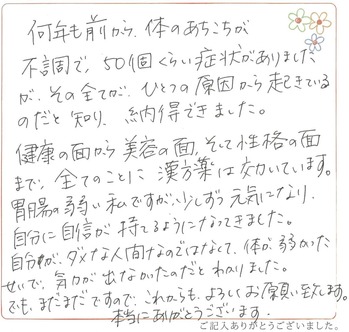 何年も前から、体のあちこちが
不調で、50個くらい症状がありました
が、その全てが、ひとつの原因から起きている
のだと知り、納得できました。
健康の面から美容の面、そして性格の面
まで、全てのことに漢方薬は効いています。
胃腸の弱い私ですが、少しずつ元気になり、
自分に自信が持てるようになってきました。
自分が、ダメな人間なのではなくて、体が弱かった
せいで、気力が出なかったのだとわかりました。
でも、まだまだですので、これからも、よろしくお願い致します。
本当にありがとうございます。
ご記入ありがとうございました。